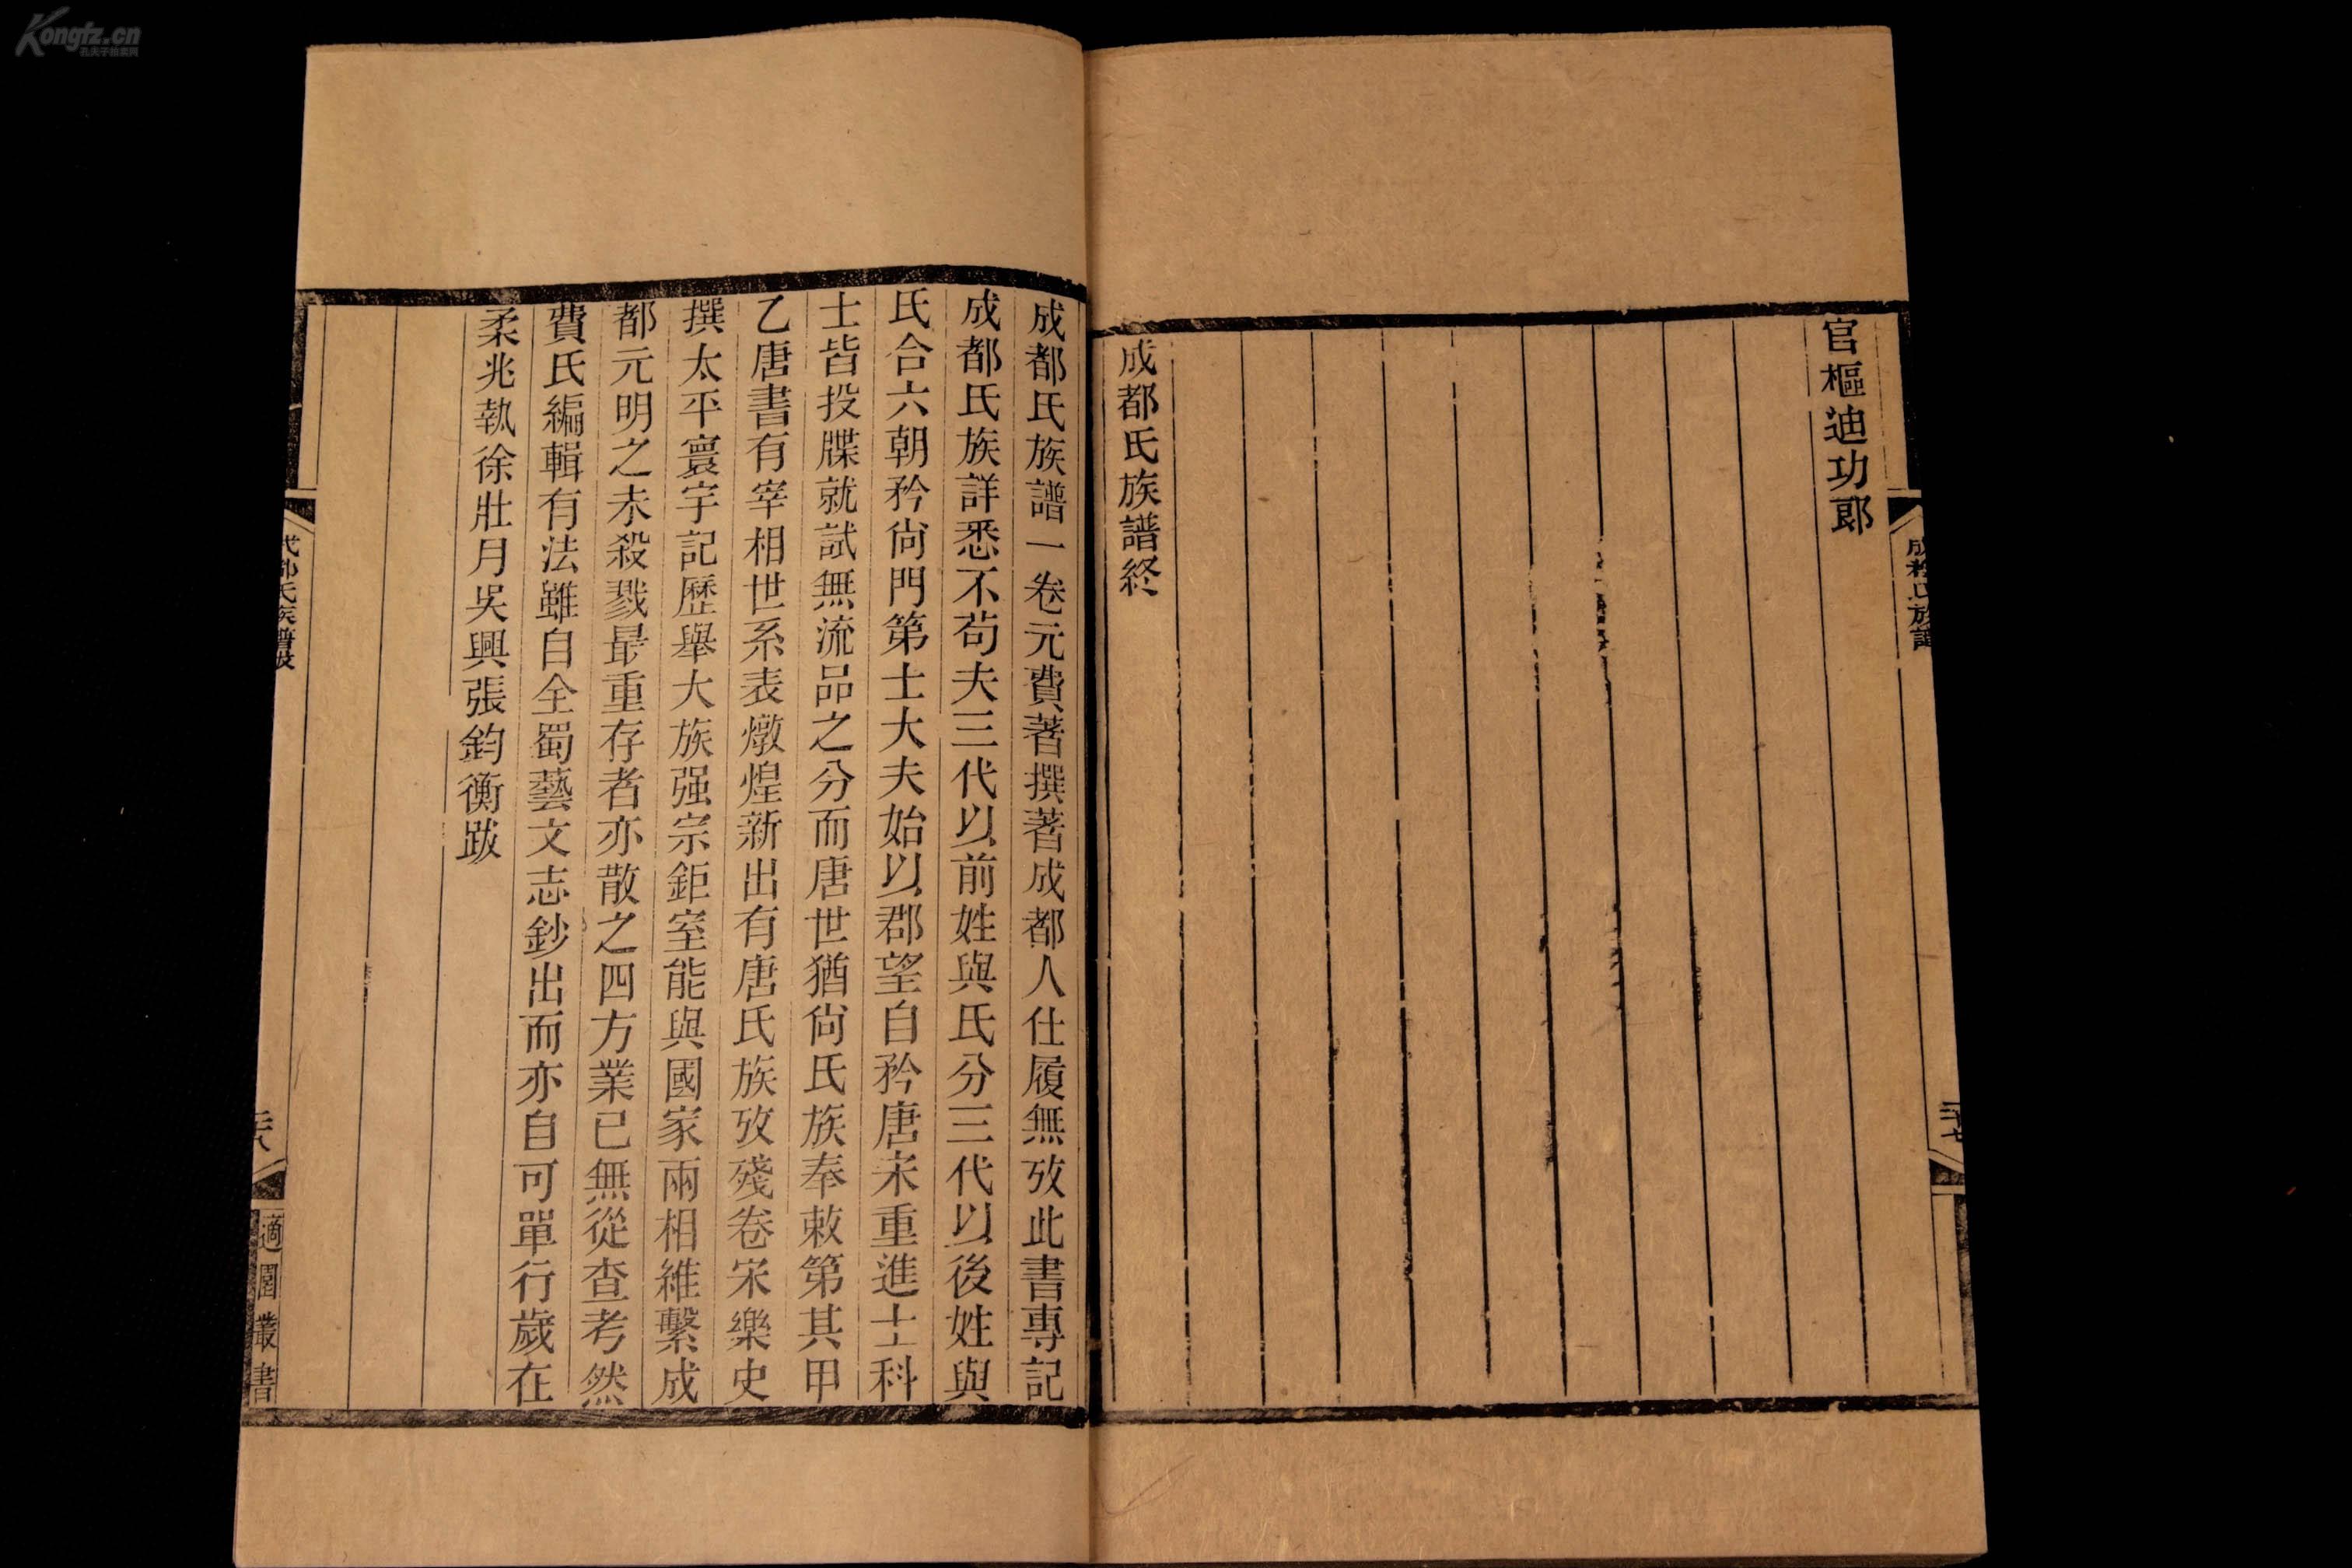 Kongfz.cn
孔夫子拍卖网
官樞迪功郎
成都氏族譜終
成都氏族譜
成都氏族譜一卷元費著撰著成都人仕履無攷此書專記
成都氏族詳悉不苟夫三代以前姓與氏分三代以後姓與
氏合六朝矜尙門第士大夫始以郡望自矜唐宋重進士科
士皆投牒就試無流品之分而唐世猶尙氏族奉敕第其甲
乙唐書有宰相世系表燉煌新出有唐氏族攷殘卷宋樂史
撰太平寰宇記歷舉大族强宗鉅室能與國家兩相維繫成
都元明之未殺戮最重存者亦散之四方業已無從查考然
費氏編輯有法雖自全蜀藝文志鈔出而亦自可單行歲在
柔兆執徐壯月吳興張鈞衡跋
成都氏族譜跋
適園叢書